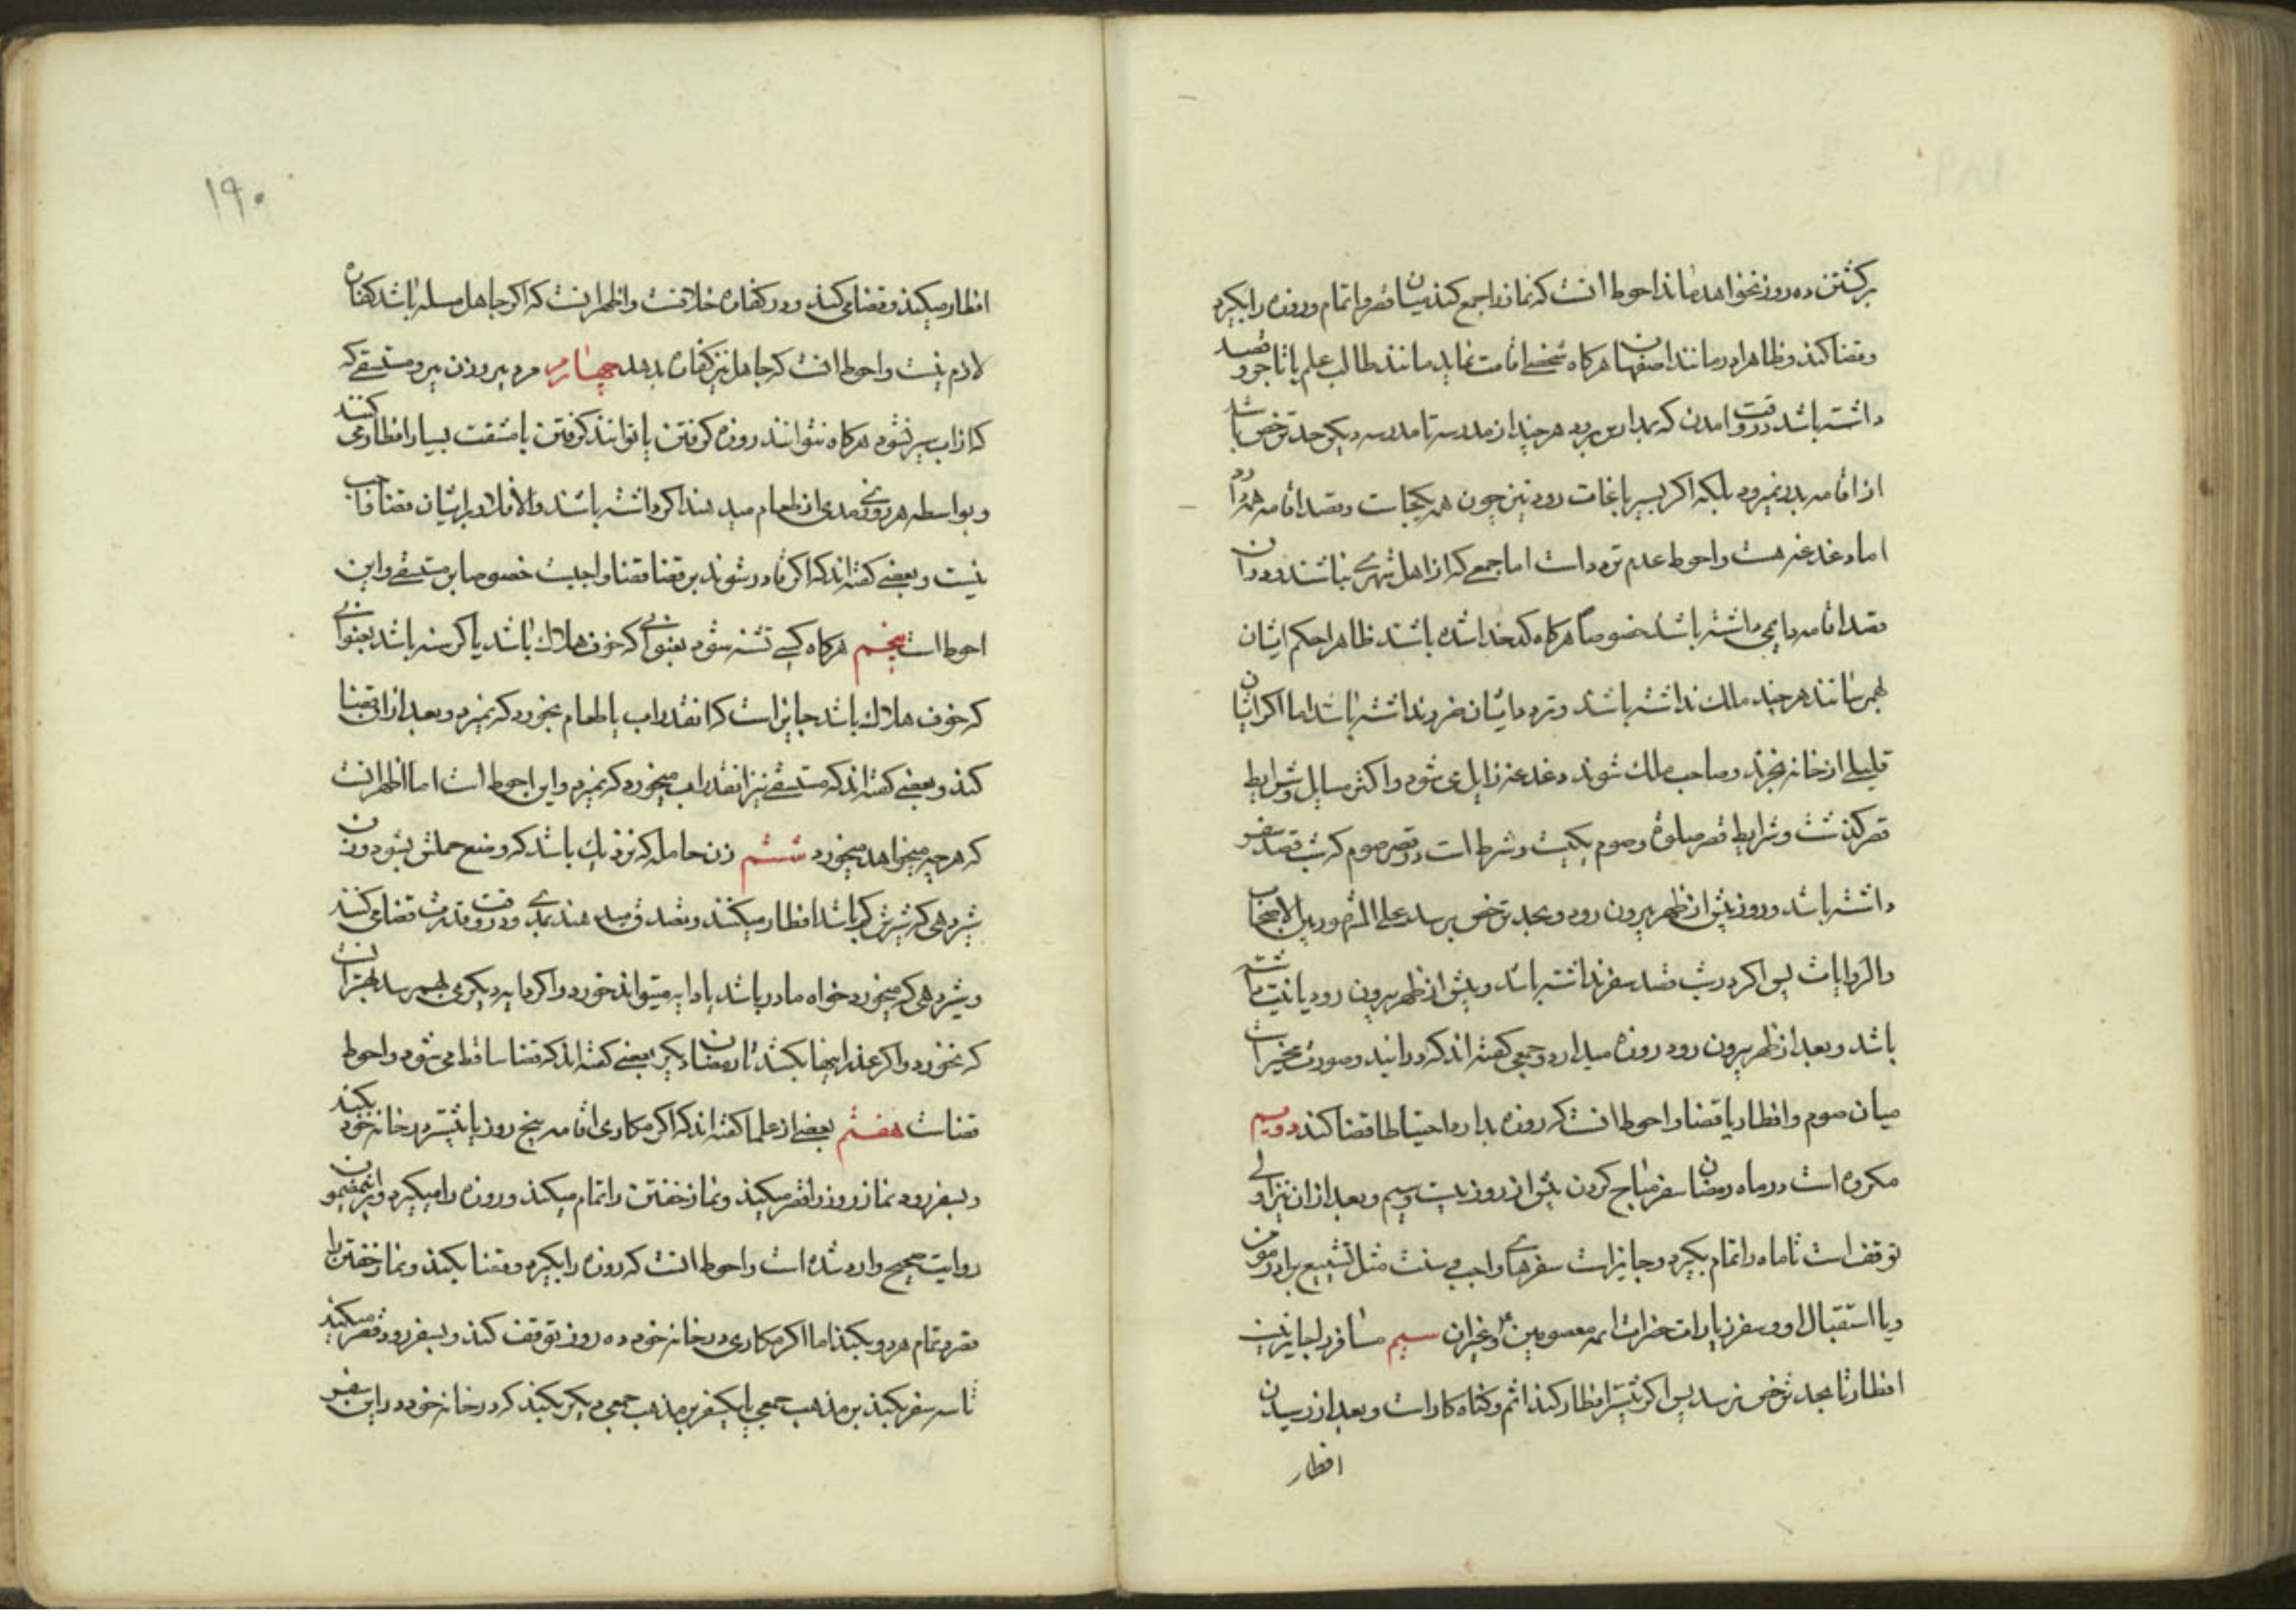 برکشتن ده روز نخواهد ماند احوط انست که نماز را جمع کند میان قصر و اتمام و روزه را بکیرد
و قضا کند و ظاهرا در مانند اصفهان هرکاه شخصی اقامت نماید مانند طالب علم یا تاجر و قصد
داشته باشد در وقت امدن که بمدارس برود هر چند از مدرسه تا مدرسه دیکر حد ترخص باشد
از اقامه بدر نمیرود بلکه اکر بسیر باغات رود نیز چون همه یکجاست و قصد اقامه همه دارد
اما دغدغه هست و احوط عدم تردد است اما جمعی که از اهل شهری نباشند و در ان
قصد اقامه دایمی داشته باشند خصوصا هرکاه کدخدا شده باشند ظاهرا حکم ایشان
بهم رسانند هر چند ملک نداشته باشند و تردد ایشان ضرر نداشته باشد اما اکر ایشان
قلیلی از خانه بخرند و صاحب ملک شوند دغدغه زایل می شود و اکثر مسایل و شرایط
قصر کذشت و شرایط قصر صلوة و صوم یکیست و شرط است در قصر صوم که شب قصد سفر
داشته باشد و روز پیش از ظهر بیرون رود و بحد ترخص برسد علی المشهور بین الاصحاب
والروایات پس اکر در شب قصد سفر نداشته باشد و پیش از ظهر بیرون رود یا نیت داشته
باشد و بعد از ظهر بیرون رود روزه میدارد و جمعی کفته اند که در این دو صورت مخیر است
میان صوم و افطار با قضا و احوط انست که روزه بدارد و احتیاطا قضا کند دویم
مکروه است در ماه رمضان سفر مباح کردن پیش از روز بیست و سیم و بعد از ان نیز اولی
توقف است تا ماه را تمام بکیرد و جایز است سفرهای واجب و سنت مثل تشییع برادر مومن
و یا استقبال او و سفر زیارات حضرات ائمه معصومین ع و غیر ان سیم مسافر را جایز نیست
افطار تا بحد ترخص نرسد پس اکر پیشتر افطار کند اثم و کناه کار است و بعد از رسیدن
افطار
۱۹۰
افطار میکند و قضا می کند و در کفاره خلافست و اظهر انست که اکر جاهل مسله باشد کفاره
لازم نیست و احوط انست که جاهل نیز کفاره بدهد چهارم مرد پیر و زن پیر و مستسقی که
که از اب سیر نشود هرکاه نتوانند روزه کرفتن یا توانند کرفتن با مشقت بسیار افطار می کنند
و بواسطه هر روزی مدی از طعام میدهند اکر داشته باشند والا فلا و بر ایشان قضا واجب
نیست و بعضی کفته اند که اکر قادر شوند بر قضا قضا واجبست خصوصا بر مستسقی و این
احوط است پنجم هرکاه کسی تشنه شود بعنوانی که خوف هلاک باشد یا کرسنه باشد بعنوانی
که خوف هلاک باشد جایز است که انقدر اب یا طعام بخورد که نمیرد و بعد از ان قضا
کند و بعضی کفته اند که مستسقی نیز انقدر اب میخورد که نمیرد و این احوط است اما اظهر انست
که هر چه میخواهد میخورد ششم زن حامله که نزدیک باشد که وضع حملش بشود و زن
شیر دهی که شیرش کم باشد افطار میکنند و تصدق میدهند بمدی و در وقت قدرت قضا می کنند
و شیر دهی که میخورد خواه مادر باشد یا دایه میتواند خورد و اکر دایه دیکر می بهم رسد بهتر انست
که نخورد و اکر عذر اینها بکشد تا رمضان دیکر بعضی کفته اند که قضا ساقط می شود و احوط
قضاست هفتم بعضی از علما کفته اند که اکر مکاری اقامه پنج روز یا بیشتر در خانه خود بکند
و بسفر رود نماز روز را قصر میکند و نماز خفتن را تمام میکند و روزه را میکیرد و برین مضمون
روایت صحیح وارد شده است و احوط انست که روزه را بکیرد و قضا بکند و نماز خفتن را
قصر و تمام هر دو بکند اما اکر مکاری در خانه خود ده روز توقف کند و بسفر رود قصر میکند
تا سه سفر بکند بر مذهب جمعی یا یکسفر بر مذهب جمعی دیکر بکند که در خانه خود در این سفر